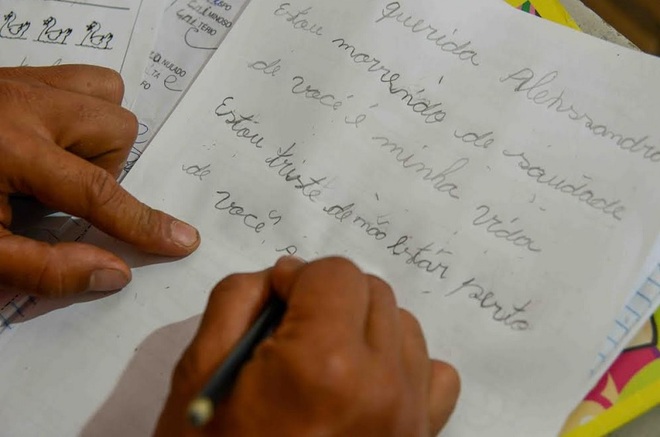 querida Alenssandra
Estou morrendo de saudade
de você é minha vida
Estou triste de não estar perto
de vocês